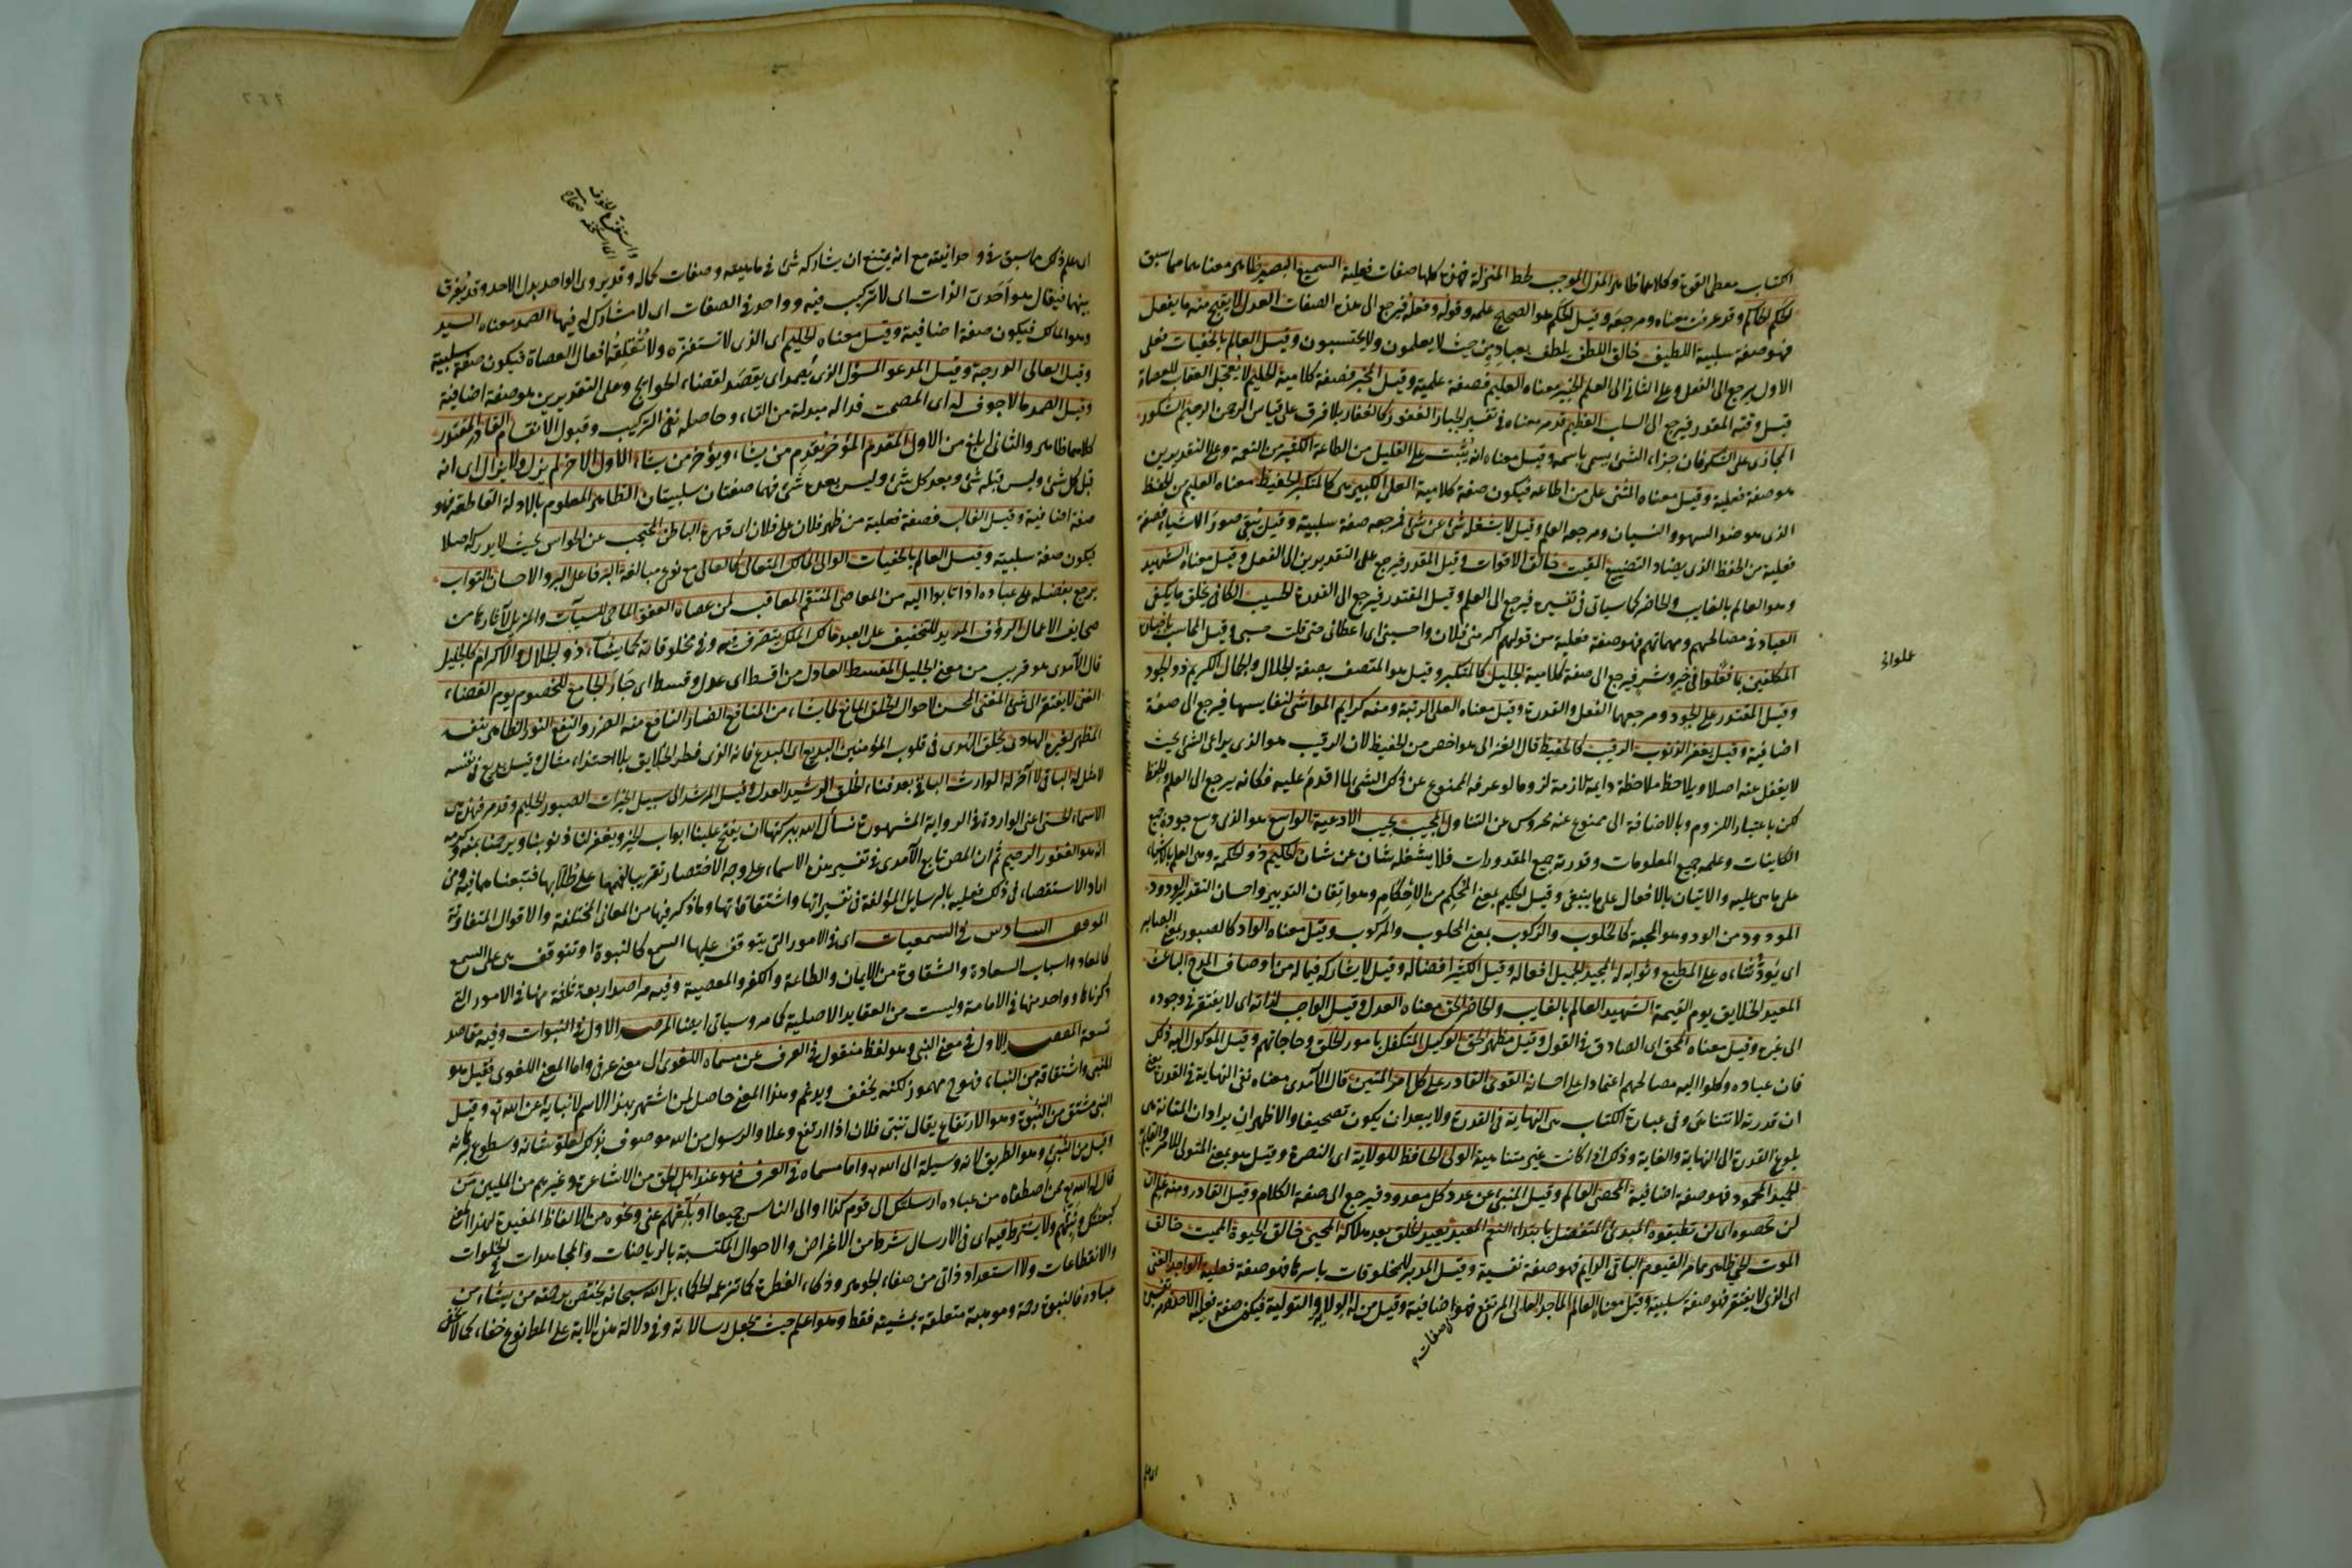 الكتاب معطى القوة وكلاهما ظاهر المذل الموجب لحط المنزلة فهذه كلها صفات فعلية السميع البصير ظاهر معناهما مما سبق
الحكم الحاكم وقد عرفت معناه ومرجعه وقيل الحكم هو الصحيح علمه وقوله وفعله فيرجع الى هذه الصفات العدل لا يقبح منه ما يفعل
فهو صفة سلبية اللطيف خالق اللطف يلطف بعباده من حيث لا يعلمون ولا يحتسبون وقيل العالم بالخفيات فعلى
الاول يرجع الى الفعل وعلى الثانى الى العلم الخبير معناه العليم فصفة علمية وقيل المخبر فصفة كلامية الحليم لا يعجل العقاب للعصاة
قبل وقته المقدر فيرجع الى السلب العظيم قد مر معناه فى تفسير الجبار الغفور كالغفار بلا فرق على قياس الرحمن الرحيم الشكور
المجازى على الشكر فان جزاء الشئ يسمى باسمه وقيل معناه انه يثيب على القليل من الطاعة الكثير من النعمة وعلى التقديرين
هو صفة فعلية وقيل معناه المثنى على من اطاعه فيكون صفة كلامية العلى الكبير هى كالمتكبر الحفيظ معناه العليم من الحفظ
الذى هو ضد السهو والنسيان ومرجعه العلم وقيل لا يشغله شئ عن شئ فمرجعه صفة سلبية وقيل يبقى صور الاشياء فصفة
فعلية من الحفظ الذى يضاد التضييع المقيت خالق الاقوات وقيل المقدر فيرجع على التقديرين الى الفعل وقيل معناه الشهيد
وهو العالم بالغايب والحاضر كما سياتى فى تفسيره فيرجع الى العلم وقيل المقتدر فيرجع الى القدرة الحسيب الكافى يخلق ما يكفى
العباد فى مصالحهم ومهماتهم فهو صفة فعلية من قولهم اكرمنى فلان واحسبنى اى اعطانى حتى قلت حسبى وقيل المحاسب باخباره
المكلفين بما فعلوا فى خير وشر فيرجع الى صفة كلامية الجليل كالمتكبر وقيل هو المتصف بصفة الجلال والجمال الكريم ذو الجود
وقيل المقتدر على الجود ومرجعها الفعل والقدرة وقيل معناه العلى الرتبة ومنه كرايم المواشى لنفايسها فيرجع الى صفة
اضافية وقيل يغفر الذنوب الرقيب كالحفيظ قال الغزالى هو اخص من الحفيظ لان الرقيب هو الذى يراعى الشئ بحيث
لا يغفل عنه اصلا ويلاحظه ملاحظة دايمة لازمة لزوما لو عرفه الممنوع عن ذلك الشئ لما اقدم عليه فكانه يرجع الى العلم والحفظ
لكن باعتبار اللزوم وبالاضافة الى ممنوع عنه محروس عن التناول المجيب يجيب الادعية الواسع هو الذى وسع جوده جميع
الكاينات وعلمه جميع المعلومات وقدرته جميع المقدورات فلا يشغله شان عن شان الحكيم ذو الحكمة وهى العلم بالاشياء
على ما هى عليه والاتيان بالافعال على ما ينبغى وقيل الحكيم بمعنى المحكم من الاحكام وهو اتقان التدبير واحسان التقدير الودود
المودود من الود وهو المحبة كالحلوب والركوب بمعنى المحلوب والمركوب وقيل معناه الواد كالصبور بمعنى الصابر
اى يود ثناءه على المطيع وثوابه له المجيد الجميل افعاله وقيل الكثير افضاله وقيل لا يشارك فيما له من اوصاف المدح الباعث
المعيد للخلايق يوم القيمة الشهيد العالم بالغايب والحاضر الحق معناه العدل وقيل الواجب لذاته اى لا يفتقر فى وجوده
الى غيره وقيل معناه المحق اى الصادق فى القول وقيل مظهر الحق الوكيل المتكفل بامور الخلق وحاجاتهم وقيل الموكول اليه ذلك
فان عباده وكلوا اليه مصالحهم اعتمادا على احسانه القوى القادر على كل امر المتين قال الآمدى معناه نفى النهاية فى القدرة يعنى
ان قدرته لا تتناهى وفى عبارة الكتاب هى النهاية فى القدرة ولا يبعد ان يكون تصحيفا والاظهر ان يراد ان المتانة هى
بلوغ القدرة الى النهاية والغاية وذلك اذا كانت غير متناهية الولى الحافظ للولاية اى النصرة وقيل هو بمعنى المتولى للامر والقايم به
الحميد المحمود فهو صفة اضافية المحصى العالم وقيل المنبئ عن عدد كل معدود فيرجع الى صفة الكلام وقيل القادر ومنه علم ان
لن تحصوه اى لن تطيقوه المبدئ المتفضل بابتداء النعم المعيد يعيد الخلق بعد هلاكه المحيى خالق الحيوة المميت خالق
الموت الحى ظاهر مما مر القيوم الباقى الدايم فهو صفة نفسية وقيل المدبر للمخلوقات باسرها فهو صفة فعلية الواجد الغنى
اى الذى لا يفتقر فهو صفة سلبية وقيل معناه العالم الماجد العالى المرتفع فهو اضافية وقيل من له الولاية والتولية فيكون صفة فعلية الاحد
علوانى
الصفات
اى علم ذلك مما سبق فى وحدانيته مع انه يمتنع ان يشاركه شئ فى ماهيته وصفات كماله وقد يروى الواحد بدل الاحد وقد يفرق
بينهما فيقال هو احدى الذات اى لا تركيب فيه وواحد فى الصفات اى لا مشارك له فيها الصمد معناه السيد
وهو المالك فيكون صفة اضافية وقيل معناه الحليم اى الذى لا تستفزه ولا تقلقه افعال العصاة فيكون صفة سلبية
وقيل العالى الدرجة وقيل المدعو المسؤل الذى يصمد اى يقصد لقضاء الحوايج وعلى التقديرين هو صفة اضافية
وقيل الصمد ما لا جوف له اى المصمت فداله مبدلة من التاء وحاصله نفى التركيب وقبول الانقسام القادر المقتدر
كلاهما ظاهر والثانى ابلغ من الاول المقدم المؤخر يقدم من يشاء ويؤخر من يشاء الاول الآخر لم يزل ولا يزال اى انه
قبل كل شئ وليس قبله شئ وبعد كل شئ وليس بعده شئ فهما صفتان سلبيتان الظاهر المعلوم بالادلة القاطعة فهو
صفة اضافية وقيل الغالب فصفة فعلية من ظهر فلان على فلان اى قهره الباطن المحتجب عن الحواس بحيث لا يدركه اصلا
فيكون صفة سلبية وقيل العالم بالخفيات الوالى المالك المتعالى كالعالى مع نوع مبالغة البر فاعل البر والاحسان التواب
يرجع بفضله على عباده اذا تابوا اليه من المعاصى المنتقم المعاقب لمن عصاه العفو الماحى للسيآت والمزيل لآثارها من
صحايف الاعمال الرؤف المريد للتخفيف على العبد مالك الملك يتصرف فيه وفى مخلوقاته كما يشاء ذو الجلال والاكرام كالجليل
قال الآمدى هو قريب من معنى الجليل المقسط العادل من اقسط اى عدل وقسط اى جار الجامع للخصوم يوم القضاء
الغنى لا يفتقر الى شئ المغنى المحسن لاحوال الخلق المانع لما يشاء من المنافع الضار النافع منه الضرر والنفع النور الظاهر بنفسه
المظهر لغيره الهادى يخلق الهدى فى قلوب المؤمنين البديع اى المبدع فانه الذى فطر الخلايق بلا احتذاء مثال وقيل بديع فى نفسه
لا مثل له الباقى لا آخر له الوارث الباقى بعد فناء الخلق الرشيد العدل وقيل المرشد الى سبيل الخيرات الصبور الحليم وقد مر فهذه هى
الاسماء الحسنى الواردة فى الرواية المشهورة نسأل الله ببركتها ان يفتح علينا ابواب الخير ويغفر لنا ذنوبنا ويرحمنا بمنه وكرمه
انه هو الغفور الرحيم ثم ان المص تابع الآمدى فى تفسير هذه الاسماء على وجه الاختصار تقريبا لفهمها على طلابها فتبعناهما فيه ومن
اراد الاستقصاء فى ذلك فعليه بالرسايل المؤلفة فى تفسيراتها واشتقاقاتها وما ذكر فيها من المعانى المختلفة والاقوال المتفاوتة
الموقف السادس فى السمعيات اى فى الامور التى يتوقف عليها السمع كالنبوة او تتوقف هى على السمع
كالمعاد واسباب السعادة والشقاوة من الايمان والطاعة والكفر والمعصية وفيه مراصد اربعة ثلثة منها فى الامور التى
ذكرناها وواحد منها فى الامامة وليست من العقايد الاصلية كما مر وسياتى ايضا المرصد الاول فى النبوات وفيه مقاصد
تسعة المقصد الاول فى معنى النبى وهو لفظ منقول فى العرف عن مسماه اللغوى الى معنى عرفى واما المعنى اللغوى فقيل هو
المنبئ واشتقاقه من النباء فهو ح مهموز لكنه يخفف ويدغم وهذا المعنى حاصل لمن اشتهر بهذا الاسم لانبايه عن الله تع وقيل
النبى مشتق من النبوة وهو الارتفاع يقال تنبى فلان اذا ارتفع وعلا والرسول من الله موصوف بذلك لعلو شانه وسطوع برهانه
وقيل من النبى وهو الطريق لانه وسيلة الى الله تع واما مسماه فى العرف فهو عند اهل الحق من الاشاعرة وغيرهم من المليين من
قال له الله تع ممن اصطفاه من عباده ارسلتك الى قوم كذا او الى الناس جميعا او بلغهم عنى ونحوه من الالفاظ المفيدة لهذا المعنى
كبعثتك ونبئهم ولا يشترط فيه اى فى الارسال شرط من الاعراض والاحوال المكتسبة بالرياضات والمجاهدات فى الخلوات
والانقطاعات ولا استعداد ذاتى من صفاء الجوهر وذكاء الفطرة كما تزعمه الحكماء بل الله سبحانه يختص برحمته من يشاء من
عباده فالنبوة رحمة وموهبة متعلقة بمشيته فقط وهو اعلم حيث يجعل رسالاته وفى دلالة هذه الآية على المط نوع خفاء كما لا يخفى